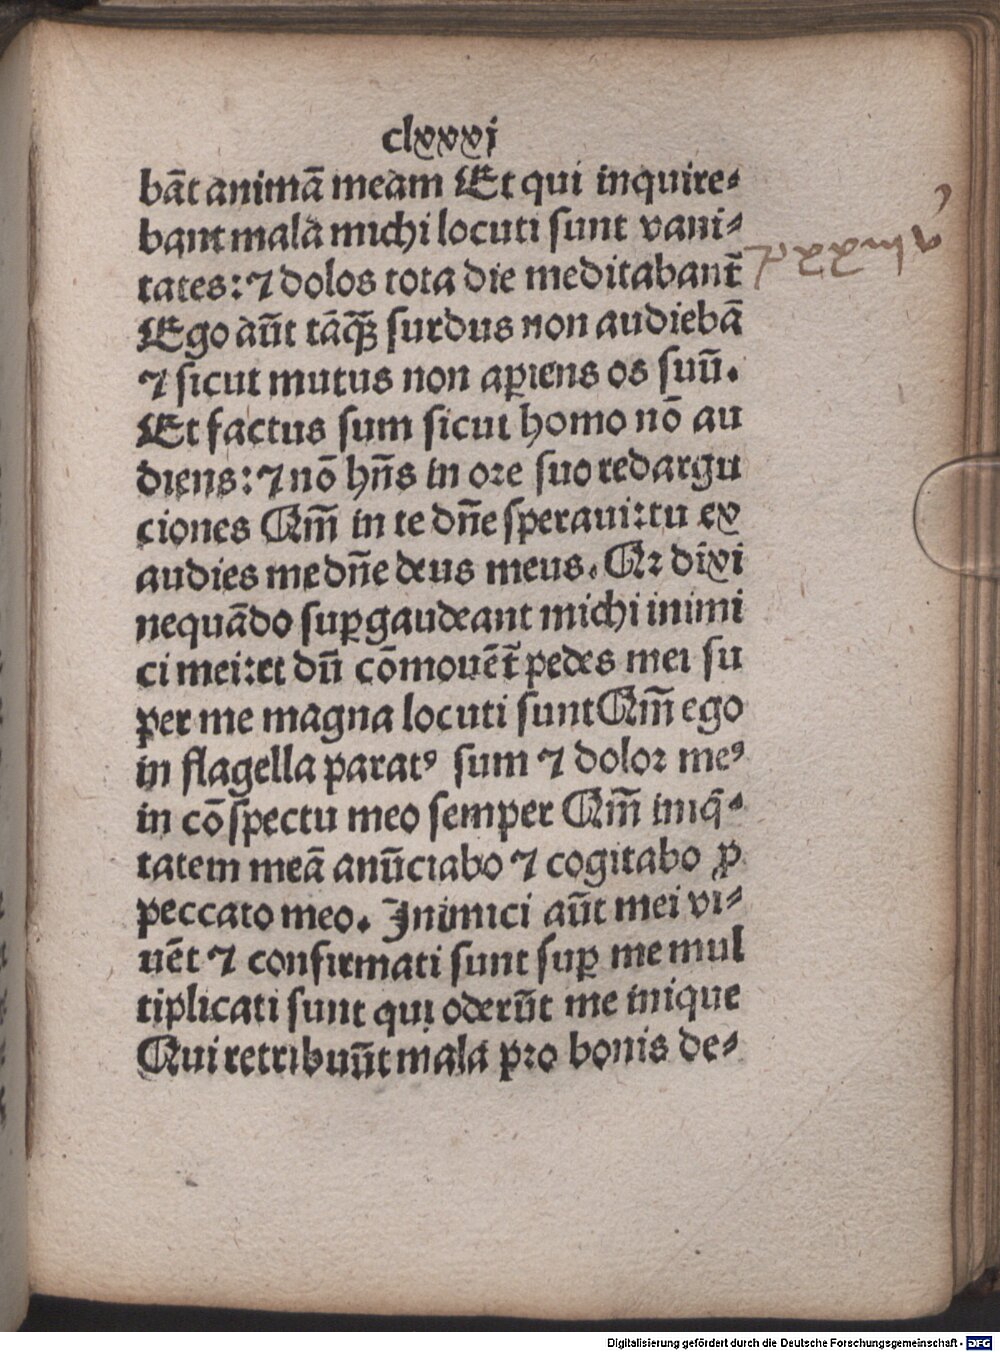 clxxxi
bāt animā meam Et qui inquire⸗
bant mala michi locuti sunt vani⸗
tates: ⁊ dolos tota die meditabant̄
Ego aūt tāqꝫ̄ surdus non audiebā
⁊ sicut mutus non aꝑiens os suū.
Et factus sum sicut homo nō au
diens: ⁊ nō hn̄s in ore suo redargu
ciones Qm̄ in te dn̄e speraui: tu ex
audies me dn̄e deus meus. Qꝛ dixi
nequādo suꝑgaudeant michi inimi
ci mei: et dū cōmouēt̄ pedes mei su
per me magna locuti sunt Qm̄ ego
in flagella paratꝰ sum ⁊ dolor meꝰ
in cōspectu meo semper Qm̄ iniq̄⸗
tatem meā anūciabo ⁊ cogitabo ꝓ
peccato meo. Inimici aūt mei vi⸗
uēt ⁊ confirmati sunt suꝑ me mul
tiplicati sunt qui oderūt me inique
Qui retribuūt mala pro bonis de⸗
Digitalisierung gefördert durch die Deutsche Forschungsgemeinschaft - DFG